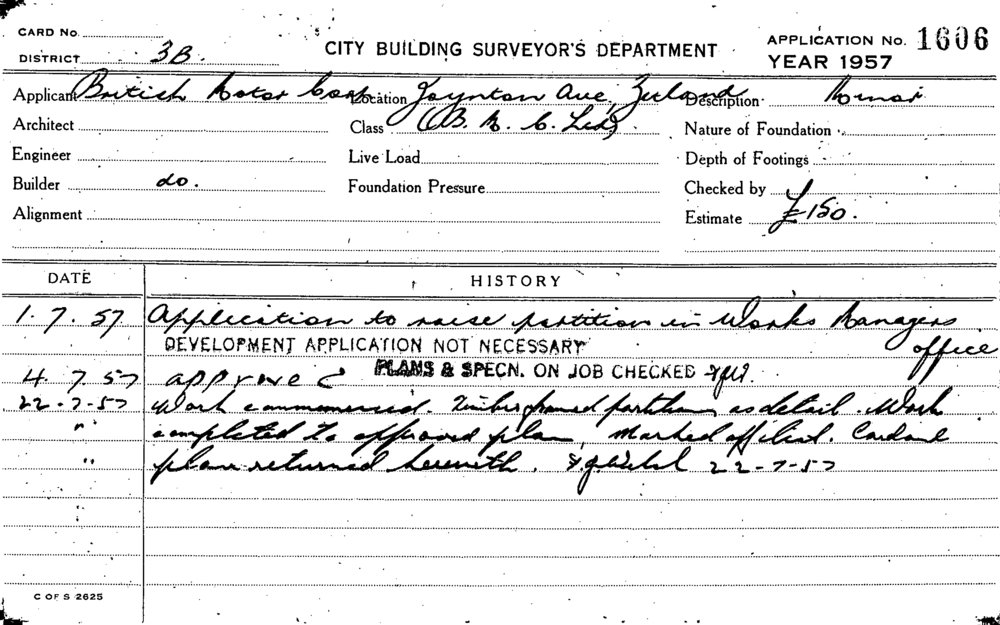 CARD No.
DISTRICT 3B.
CITY BUILDING SURVEYOR'S DEPARTMENT
APPLICATION No. 1606
YEAR 1957
Applicant British Motor Corp. Location Joynton Ave, Zetland Description Minor
Architect Class (B. M. C. Ltd) Nature of Foundation
Engineer Live Load Depth of Footings
Builder do. Foundation Pressure Checked by
Alignment Estimate £150.
DATE HISTORY
1.7.57 Application to raise partition in Works Managers office
DEVELOPMENT APPLICATION NOT NECESSARY
4.7.57 approved PLANS & SPECN. ON JOB CHECKED
22-7-57 Work commenced. Timber framed partition as detail. Work
" completed to approved plan, marked off list. Card and
" plan returned herewith. 22-7-57
C OF S 2625